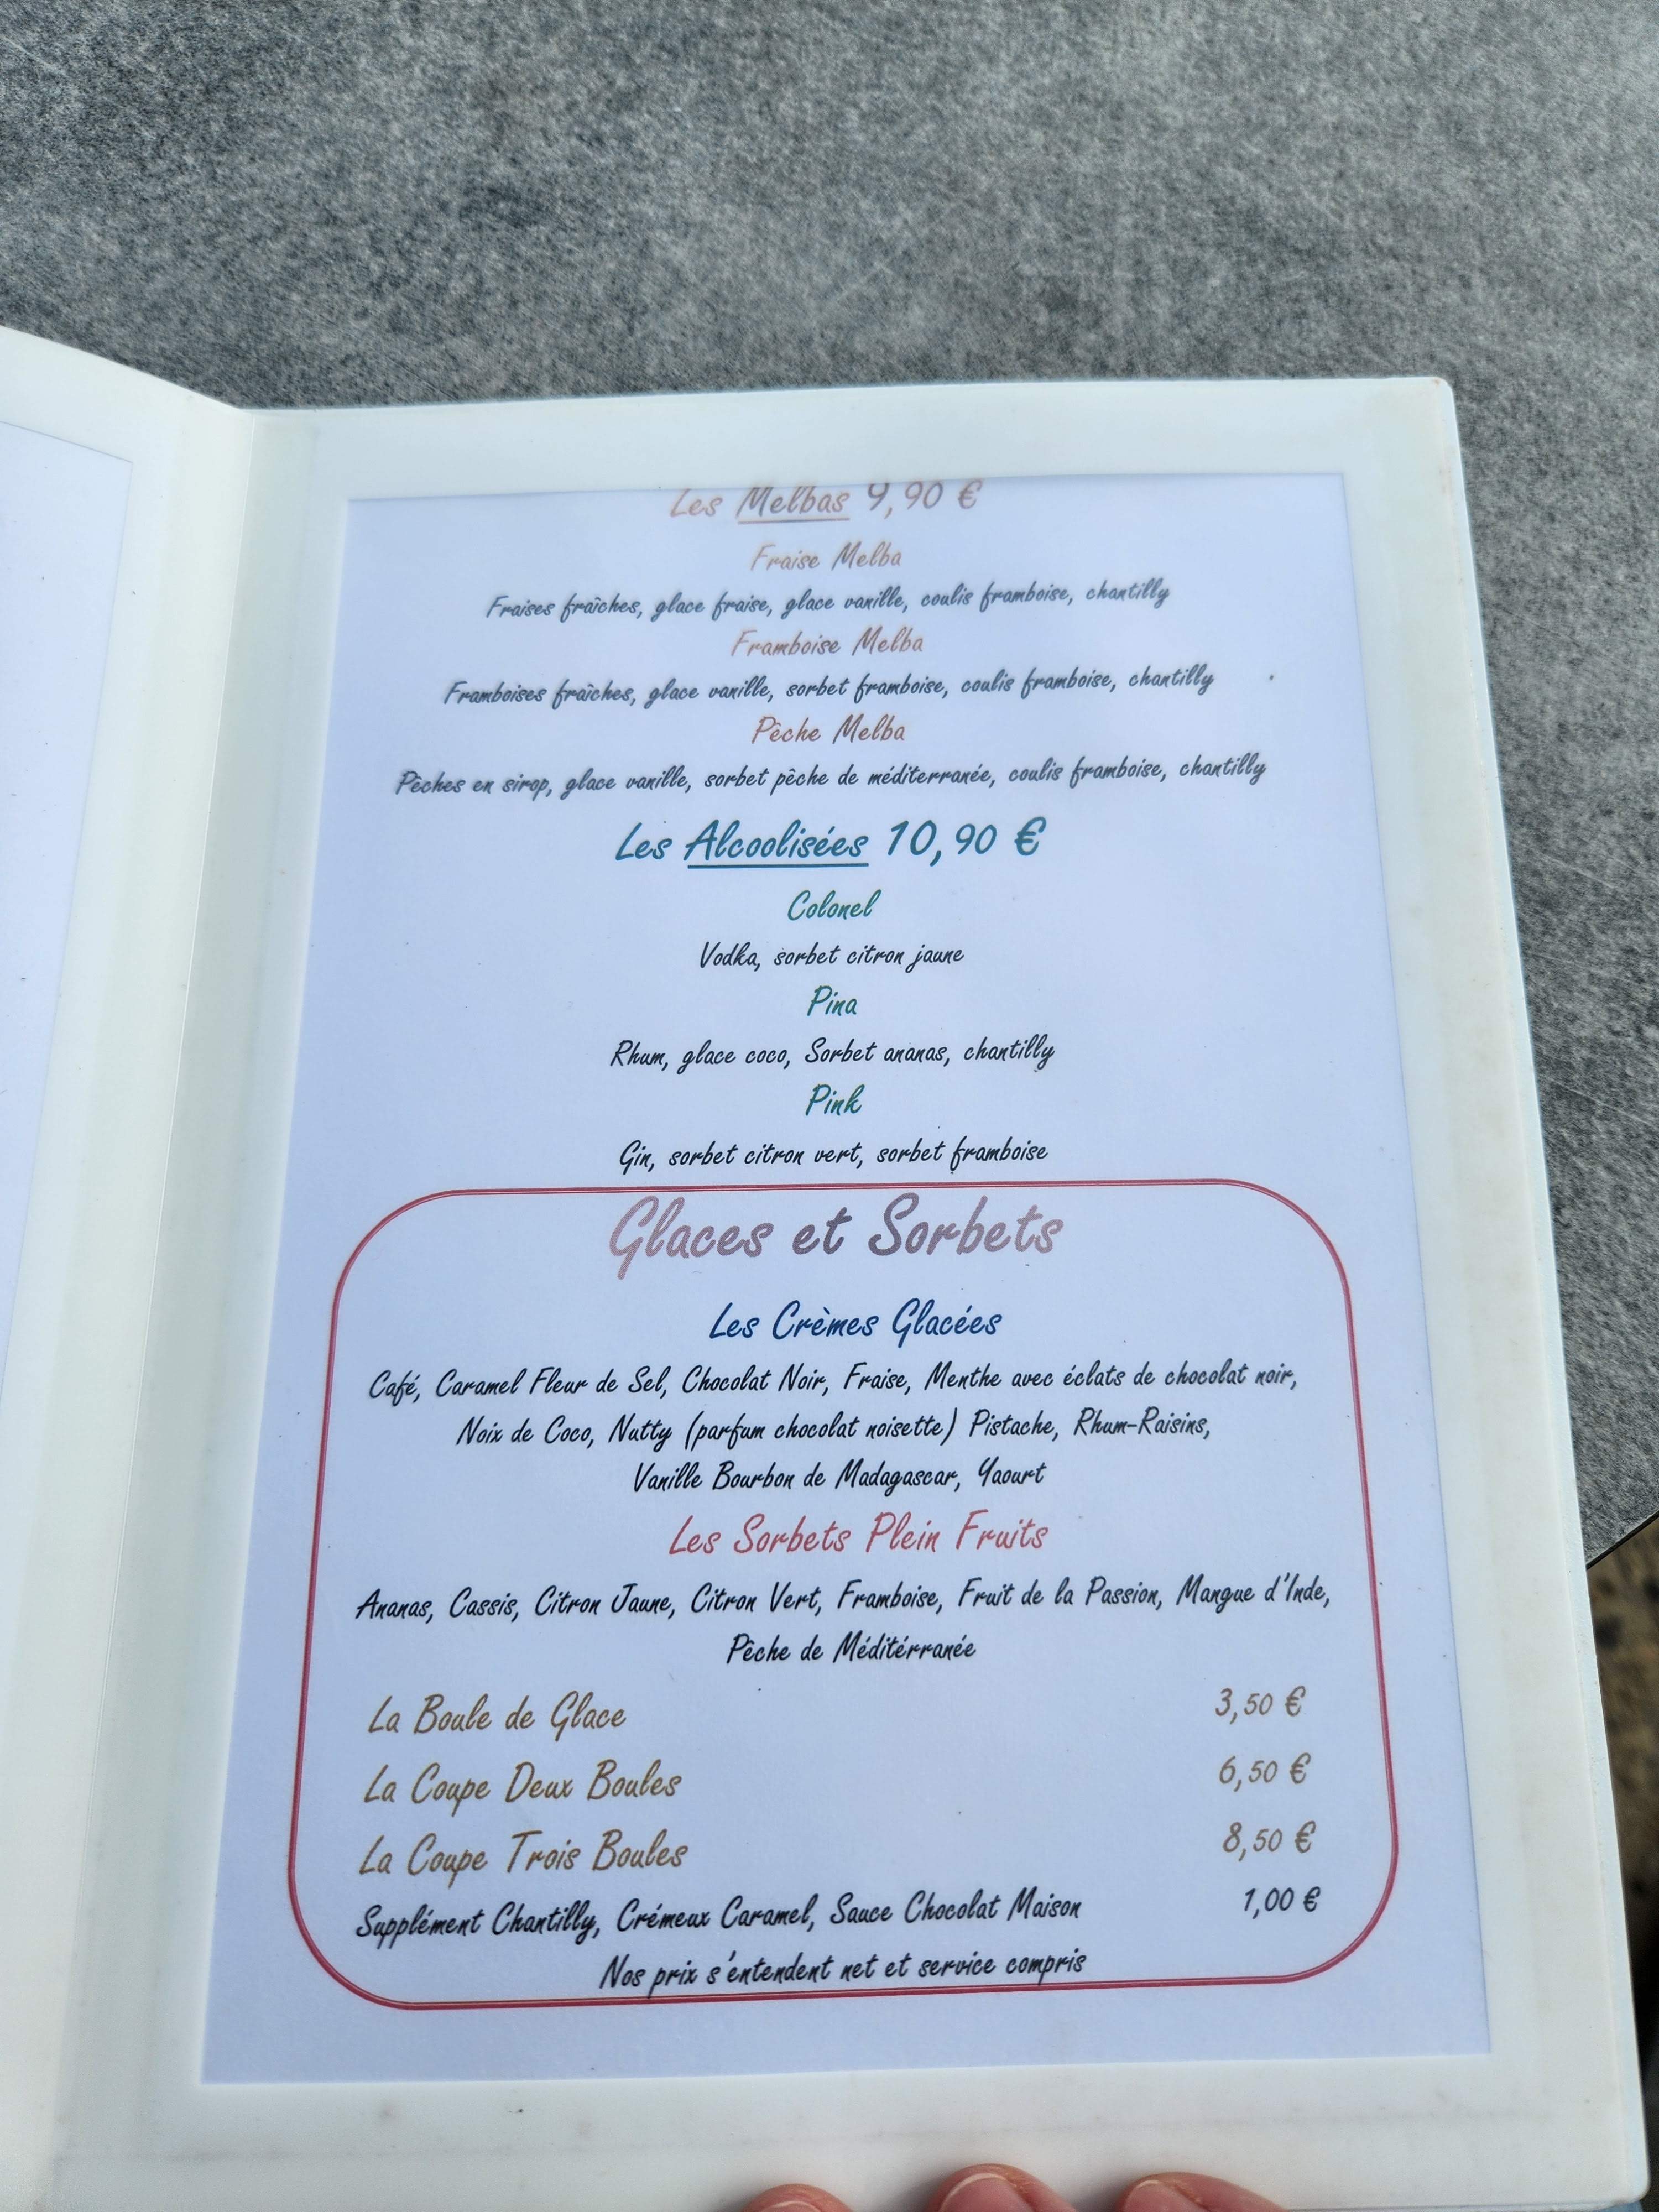 Les Melbas 9,90 €
Fraise Melba
Fraises fraîches, glace fraise, glace vanille, coulis framboise, chantilly
Framboise Melba
Framboises fraîches, glace vanille, sorbet framboise, coulis framboise, chantilly
Pêche Melba
Pêches en sirop, glace vanille, sorbet pêche de méditerranée, coulis framboise, chantilly
Les Alcoolisées 10,90 €
Colonel
Vodka, sorbet citron jaune
Pina
Rhum, glace coco, Sorbet ananas, chantilly
Pink
Gin, sorbet citron vert, sorbet framboise
Glaces et Sorbets
Les Crèmes Glacées
Café, Caramel Fleur de Sel, Chocolat Noir, Fraise, Menthe avec éclats de chocolat noir,
Noix de Coco, Nutty (parfum chocolat noisette) Pistache, Rhum-Raisins,
Vanille Bourbon de Madagascar, Yaourt
Les Sorbets Plein Fruits
Ananas, Cassis, Citron Jaune, Citron Vert, Framboise, Fruit de la Passion, Mangue d'Inde,
Pêche de Méditérranée
La Boule de Glace 3,50 €
La Coupe Deux Boules 6,50 €
La Coupe Trois Boules 8,50 €
Supplément Chantilly, Crémeux Caramel, Sauce Chocolat Maison 1,00 €
Nos prix s'entendent net et service compris